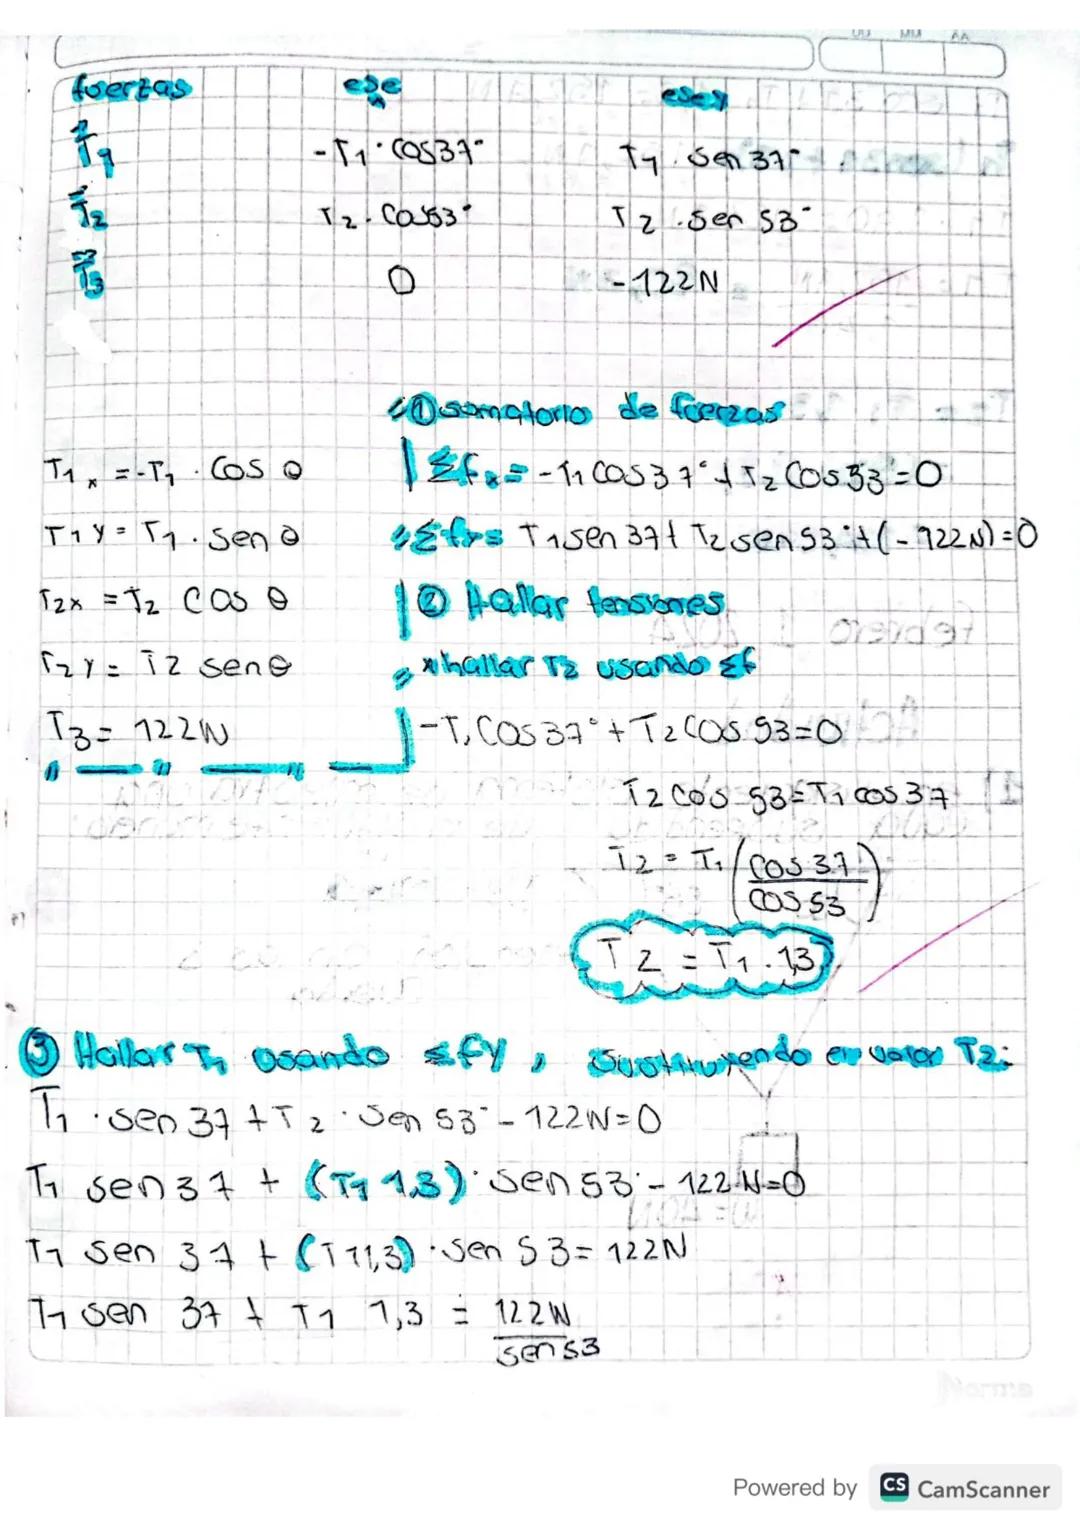 DD MM AA
fuerzas eje x eje y
T1 -T1 · cos37° T1 . sen 37°
T2 T2 . Cos53° T2 . sen 53°
T3 0 -122N
① somatorio de fuerzas
T1x = -T1 . Cos θ
Σfx = -T1 cos37° + T2 cos 53 = 0
T1y = T1 . sen θ
Σfy = T1 sen 37 + T2 sen 53 + (-122N) = 0
T2x = T2 cos θ
② Hallar tensiones
T2y = T2 sen θ
* hallar T2 usando Σf
T3 = 122N
-T1 cos 37° + T2 cos 53 = 0
T2 cos 53 = T1 cos 37
T2 = T1 (cos 37 / cos 53)
T2 = T1 . 1,3
③ Hallar T1 usando Σfy, sustituyendo en valor T2:
T1 · sen 37 + T2 · sen 53° - 122N = 0
T1 sen 37 + (T1 1,3) · sen 53 - 122 N = 0
T1 sen 37 + (T1 1,3) · sen 53 = 122N
T1 sen 37 + T1 1,3 = 122N / sen 53
Norma
Powered by CS CamScanner